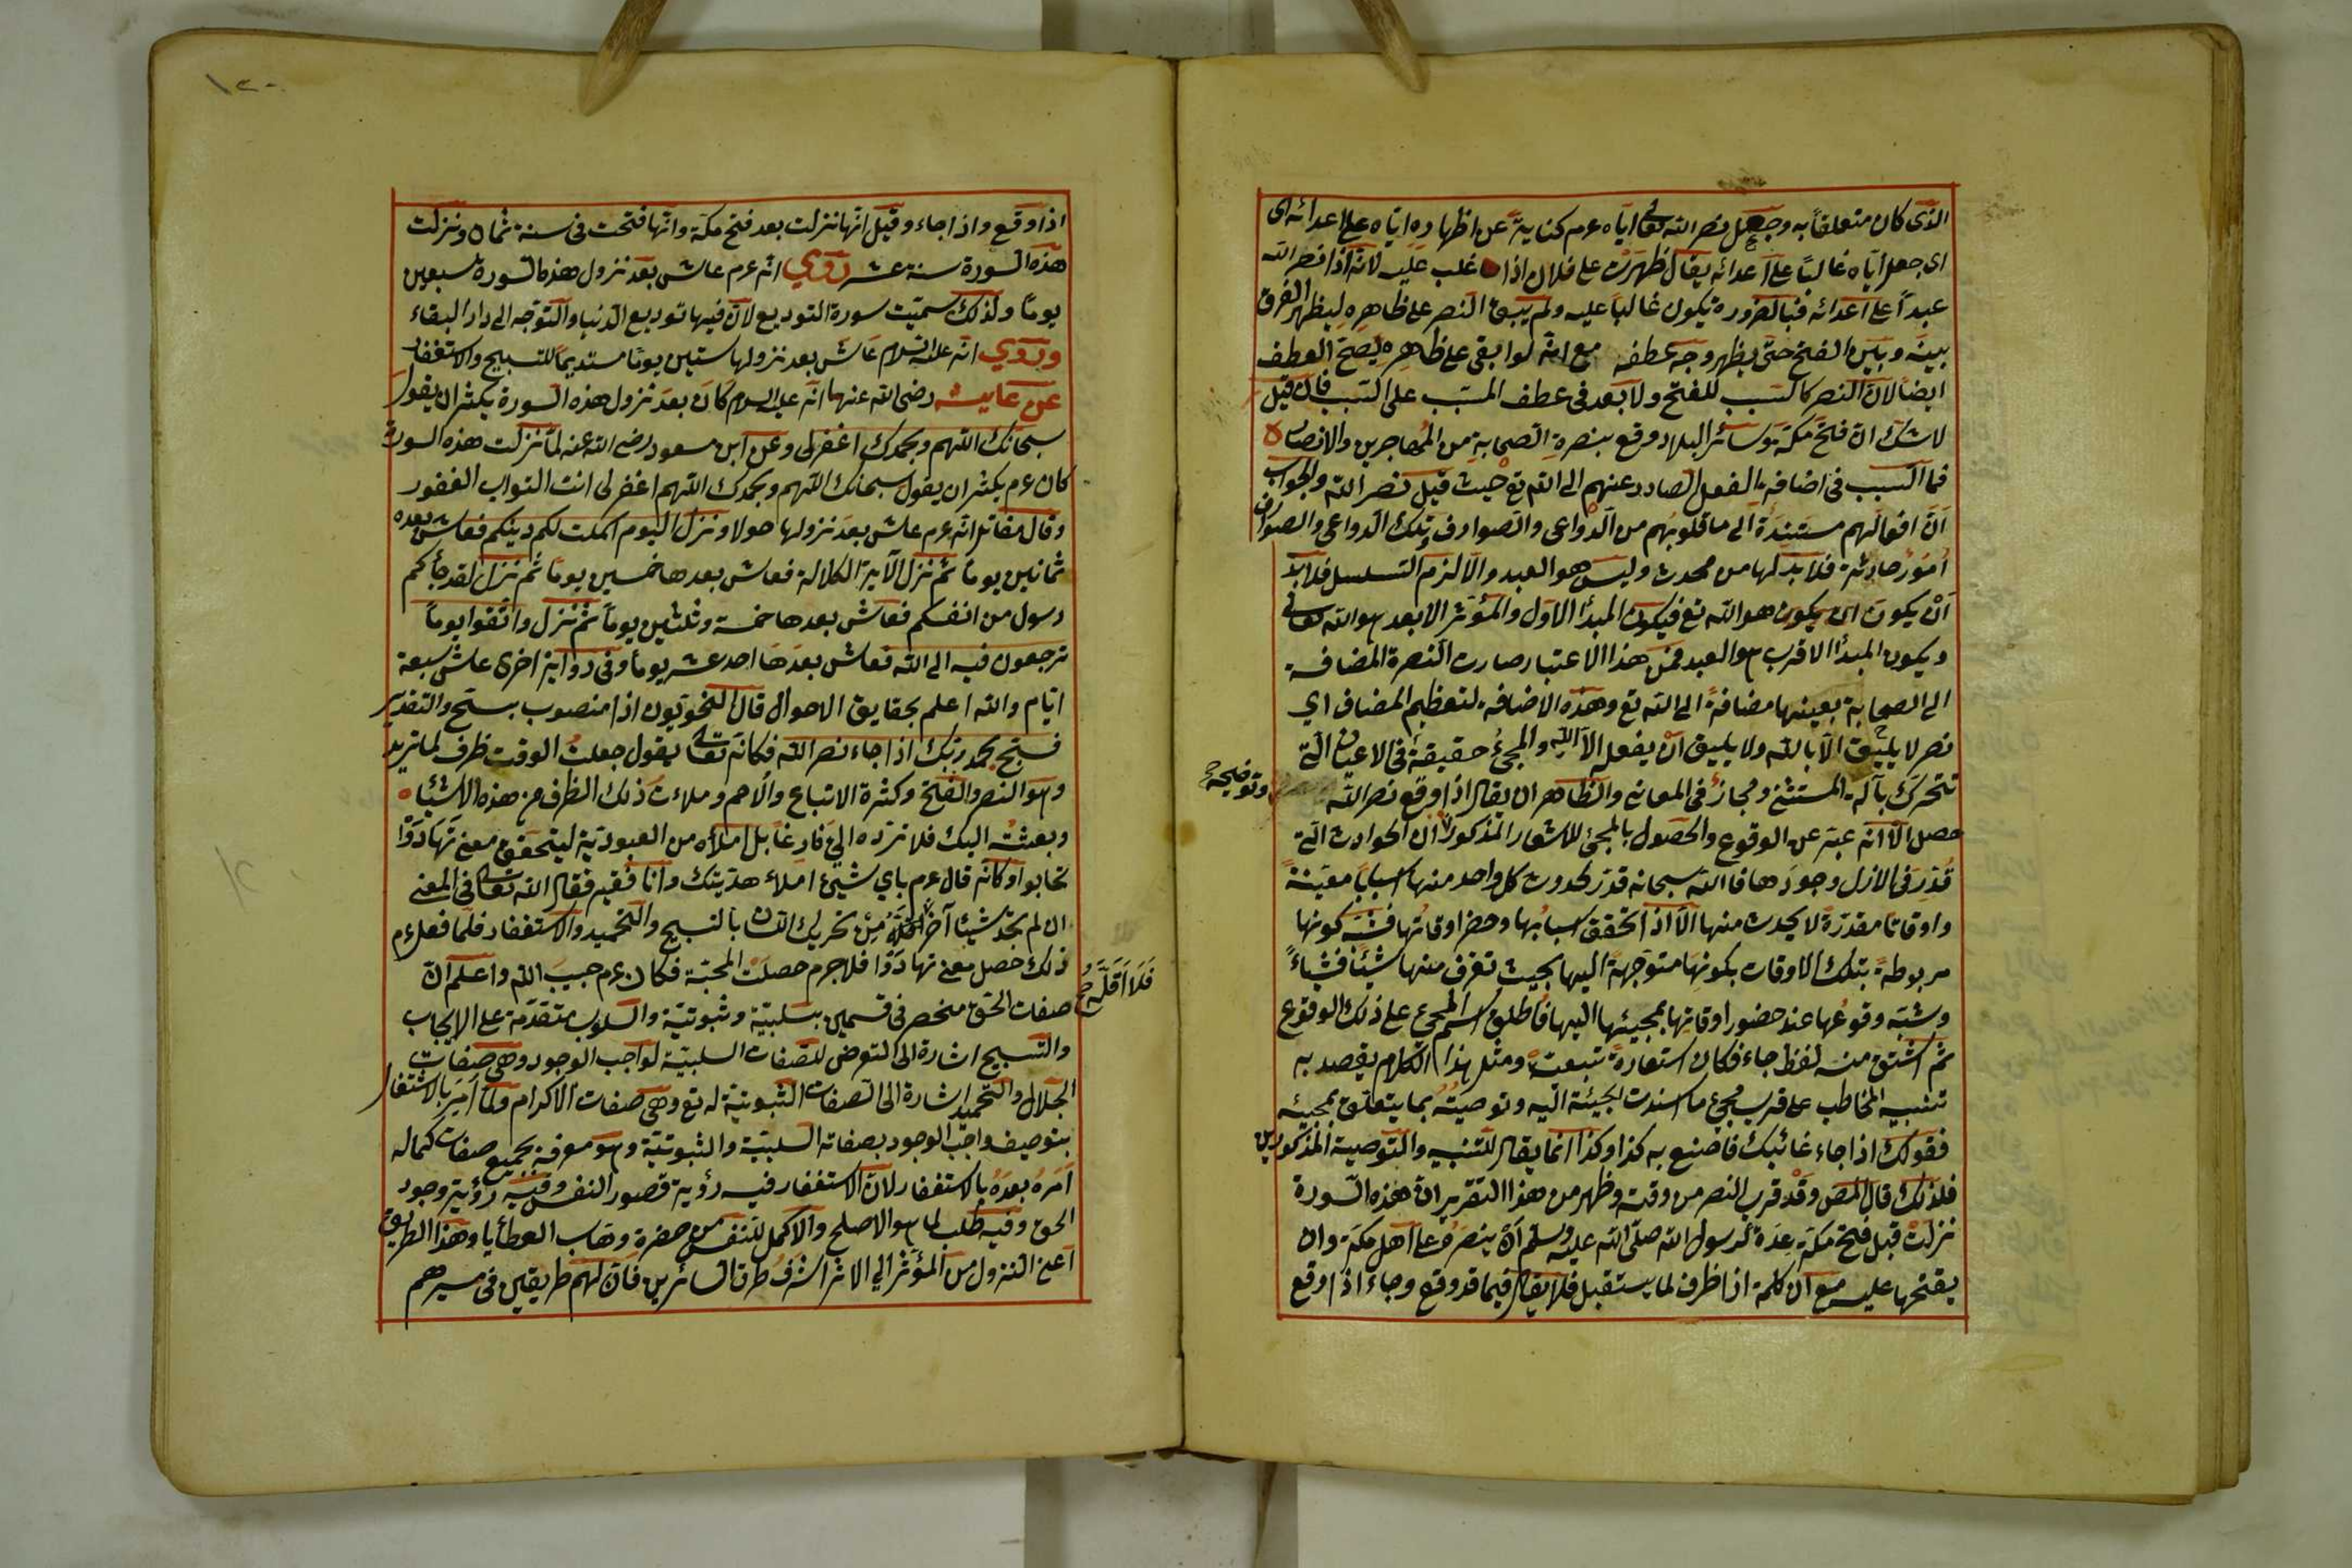 الذى كان متعلقاً به وجعل نصر الله تعالى اياه عم كناية عن اظهاره اياه على اعدائه اى
اى جعل اياه غالباً على اعدائه يقال ظهرت على فلان اذا غلب عليه لانه اذا نصر الله
عبداً على اعدائه فبالضرورة يكون غالباً عليه ولم يبق النصر على ظاهره ليظهر الفرق
بينه وبين الفتح حتى يظهر وجه عطفه مع انه لو ابقى على ظاهره يصح العطف
ايضا لان النصر كالسبب للفتح ولا بعد فى عطف المسبب على السبب فان قيل
لا شك ان فتح مكة وسائر البلاد وقع بنصرة الصحابة من المهاجرين والانصار
فما السبب فى اضافة الفعل الصادر عنهم الى الله تع حيث قيل نصر الله والجواب
ان افعالهم مستندة الى ما فى قلوبهم من الدواعى والصوارف وتلك الدواعى والصوارف
امور حادثة فلا بد لها من محدث وليس هو العبد والا لزم التسلسل فلا بد
ان يكون ان يكون هو الله تع فيكون المبدأ الاول والمؤثر الابعد هو الله تعالى
ويكون المبدأ الاقرب هو العبد فمن هذا الاعتبار صارت النصرة المضافة
الى الصحابة بعينها مضافة الى الله تع وهذه الاضافة لتعظيم المضاف اي
نصر لا يليق الا بالله ولا يليق ان يفعله الا الله والمجئ حقيقة فى الاعيان التى
تتحرك بآلة المستثنى ومجاز فى المعانى والظاهر ان يقال اذا وقع نصر الله
وتوضيحه
حصل الا انه عبر عن الوقوع والحصول بالمجئ للاشعار المذكور ان الحوادث التى
قدر فى الازل وجودها فالله سبحانه قدر لحدوث كل واحد منها اسبابا معينة
واوقاتا مقدرة لا يحدث منها الا اذا تحقق اسبابها وحضر اوقاتها فشبه كونها
مربوطة بتلك الاوقات بكونها متوجهة اليها بحيث تقرب منها شيئا فشيئاً
وشبه وقوعها عند حضور اوقاتها بمجيئها اليها فاطلق اسم المجئ على ذلك الوقوع
ثم اشتق منه لفظ جاء فكان استعارة تبعية ومثل هذا الكلام يقصد به
تنبيه المخاطب على قرب مجئ ما اسندت الجيئة اليه وتوصيته بما يتعلق بمجيئه
فقولك اذا جاء غائبك فاصنع به كذا وكذا انما يقال للتنبيه والتوصية المذكورين
فلذلك قال المص وقد قرب النصر من وقته وظهر من هذا التقرير ان هذه السورة
نزلت قبل فتح مكة عدة لرسول الله صلى الله عليه وسلم ان ينصره على اهل مكة وان
يفتحها عليه مع ان كلمة اذا ظرف لما يستقبل فلا يقال فيما قد وقع وجاء اذا وقع
اذا وقع واذا جاء وقيل انها نزلت بعد فتح مكة وانها فتحت فى سنة ثمان ونزلت
هذه السورة سنة عشر روي انه عم عاش بعد نزول هذه السورة سبعين
يوما ولذلك سميت سورة التوديع لان فيها توديع الدنيا والتوجه الى دار البقاء
وروي انه عليه السلام عاش بعد نزولها ستين يوما مستديما للتسبيح والاستغفار
عن عايشه رضى الله عنها انه عليه السلام كان بعد نزول هذه السورة يكثر ان يقول
سبحانك اللهم وبحمدك اغفر لى وعن ابن مسعود رضى الله عنه لما نزلت هذه السورة
كان عم يكثر ان يقول سبحانك اللهم وبحمدك اللهم اغفر لى انت التواب الغفور
وقال مقاتل انه عم عاش بعد نزولها حولا ونزل اليوم اكملت لكم دينكم فعاش بعده
ثمانين يوما ثم نزل الآية الكلالة فعاش بعدها خمسين يوما ثم نزل لقد جاءكم
رسول من انفسكم فعاش بعدها خمسة وثلثين يوما ثم نزل واتقوا يوما
ترجعون فيه الى الله فعاش بعدها احد عشر يوما وفى رواية اخرى عاش سبعة
ايام والله اعلم بحقايق الاحوال قال النحويون اذا منصوب بسبح والتقدير
فسبح بحمد ربك اذا جاء نصر الله فكانه تعالى يقول جعلت الوقت ظرف لما تريد
وهو النصر والفتح وكثرة الاتباع والامم وملاءت ذلك الظرف من هذه الاشياء
وبعثته اليك فلا ترده الي فارغا بل املأه من العبودية ليتحقق معنى تهادوا
تحابوا وكانه قال عم باي شيئ املاء هديتك وانا فقير فقال الله تعالى فى المعنى
ان لم تجد شيئا آخر من تحريك اللسان بالتسبيح والتحميد والاستغفار فلما فعل عم
ذلك حصل معنى تهادوا فلا جرم حصلت المحبة فكان عم حبيب الله واعلم ان
فلا اقله صح
صفات الحق منحصر فى قسمين سلبية وثبوتية والسلوب متقدمة على الايجاب
والتسبيح اشارة الى التعرض للصفات السلبية لواجب الوجود وهى صفات
الجلال والتحميد اشارة الى الصفات الثبوتية له تع وهى صفات الاكرام ولما امر بالاشتغال
بتوصيف واجب الوجود بصفاته السلبية والثبوتية وهو معرفة بجميع صفات كماله
امره بعده بالاستغفار لان الاستغفار فيه رؤية قصور النفس وفيه رؤية وجود
الحق وفيه طلب لما هو الاصلح والاكمل للنفس من حضرة وهاب العطايا وهذا الطريق
اعنى النزول من المؤثر الي الاثر اشرف طرق السائرين فان لهم طريقين فى سيرهم